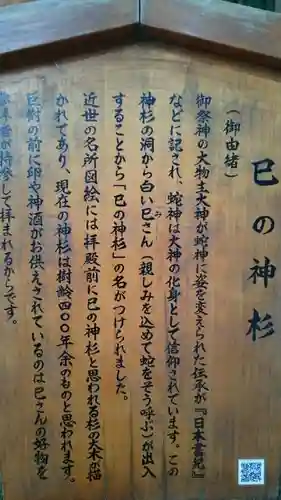 巳の神杉
(御由緒)
御祭神の大物主大神が蛇神に姿を変えられた伝承が『日本書紀』
などに記され、蛇神は大神の化身として信仰されています。この
神杉の洞から白い巳さん(親しみを込めて蛇をそう呼ぶ)が出入
み
することから「巳の神杉」の名がつけられました。
近世の名所図絵には拝殿前に巳の神杉と思われる杉の大木が描
かれてあり、現在の神杉は樹齢四〇〇年余のものと思われます。
巨樹の前に卵や神酒がお供えされているのは巳さんの好物を
参拝者が持参して拝まれるからです。